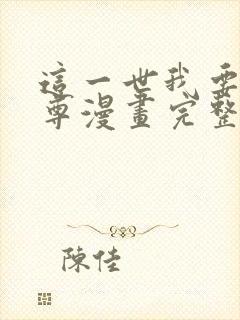 這一世我要
尊漫畫完整
陳佳